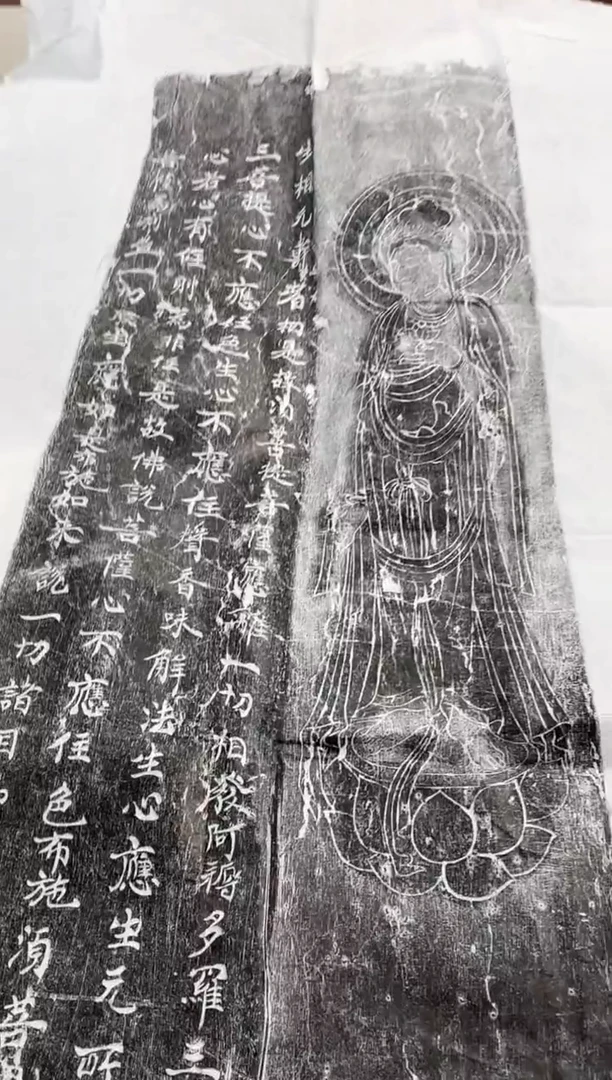 生相无壽者相是故須菩提菩薩應離一切相發阿耨多羅三
三菩提心不應住色生心不應住聲香味解法生心應生无所
心若心有住則為非住是故佛說菩薩心不應住色布施須菩
益一切眾生應如是布施如來說一切諸相